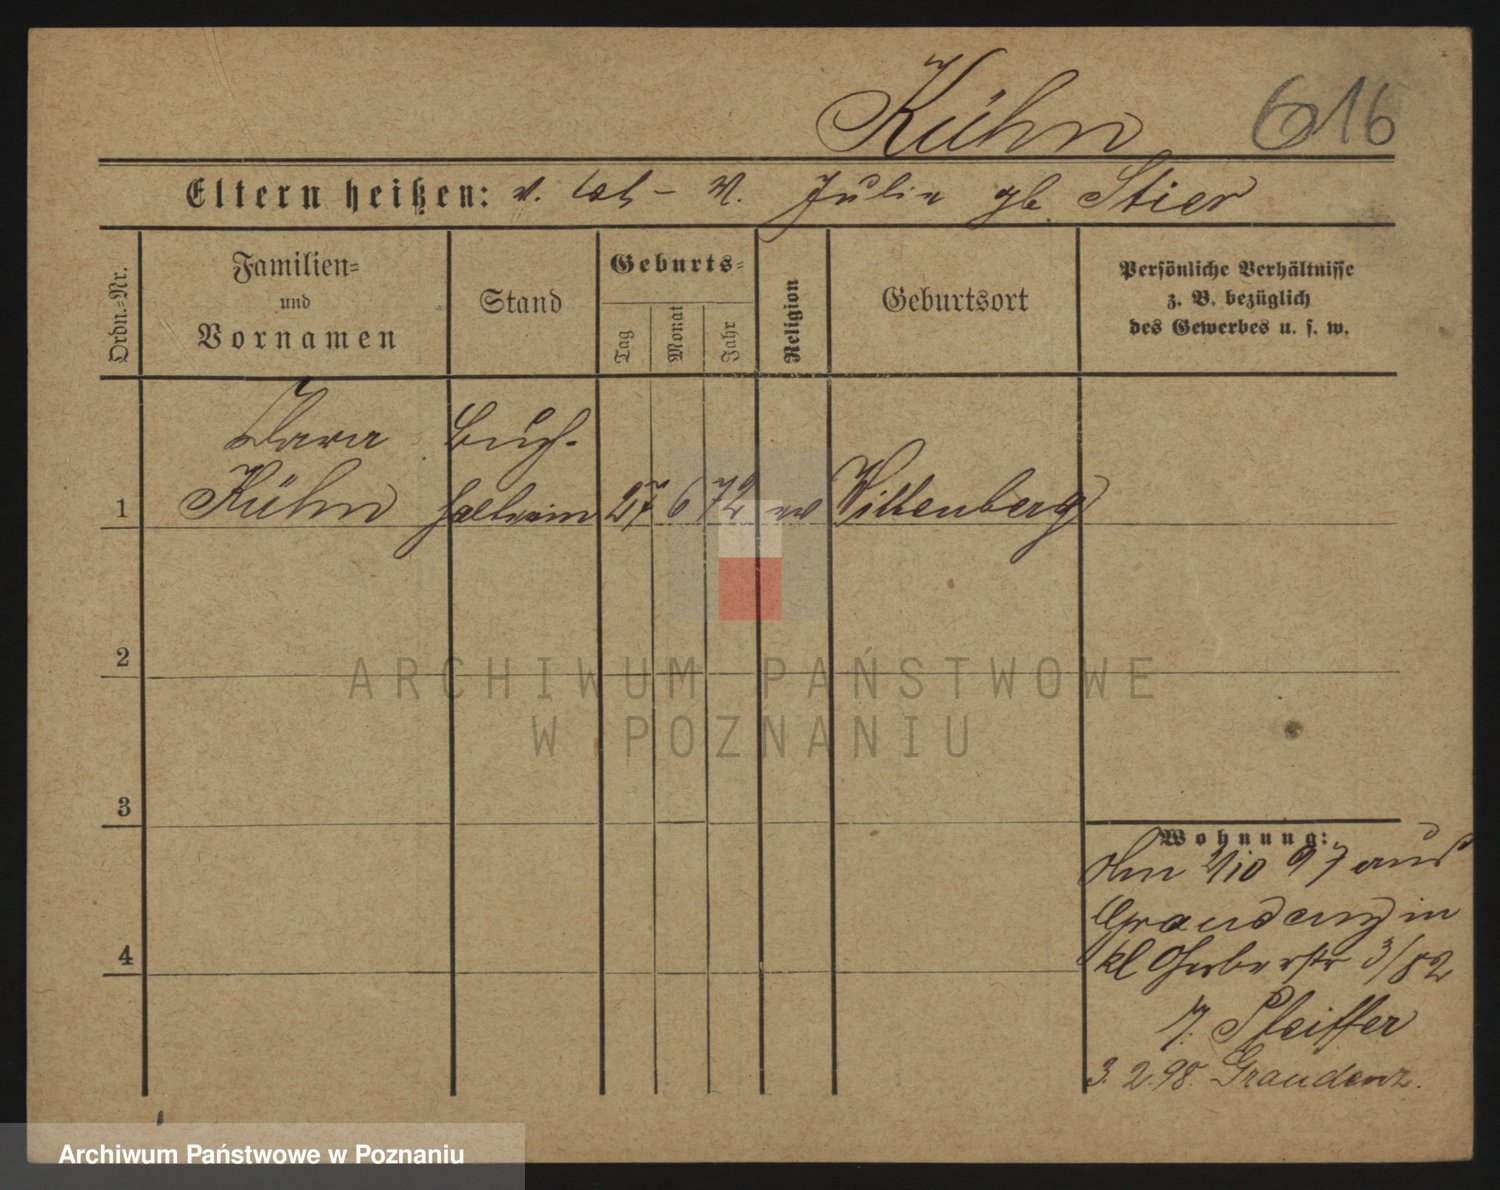 Kühn 616
Eltern heißen: v. tot – M. Julie gb. Stier
Ordn.-Nr.
Familien-
und
Vornamen
Stand
Geburts-
Tag
Monat
Jahr
Religion
Geburtsort
Persönliche Verhältnisse
z. B. bezüglich
des Gewerbes u. s. w.
Buch-
1 Kühn halterin 27 6 72 ev Wittenberg
2
ARCHIWUM PAŃSTWOWE
W POZNANIU
3
Wohnung:
Am 2/10 97 aus
Graudenz in
kl Gerberstr 3/82
Pfeiffer
4
3. 2. 98. Graudenz.
Archiwum Państwowe w Poznaniu